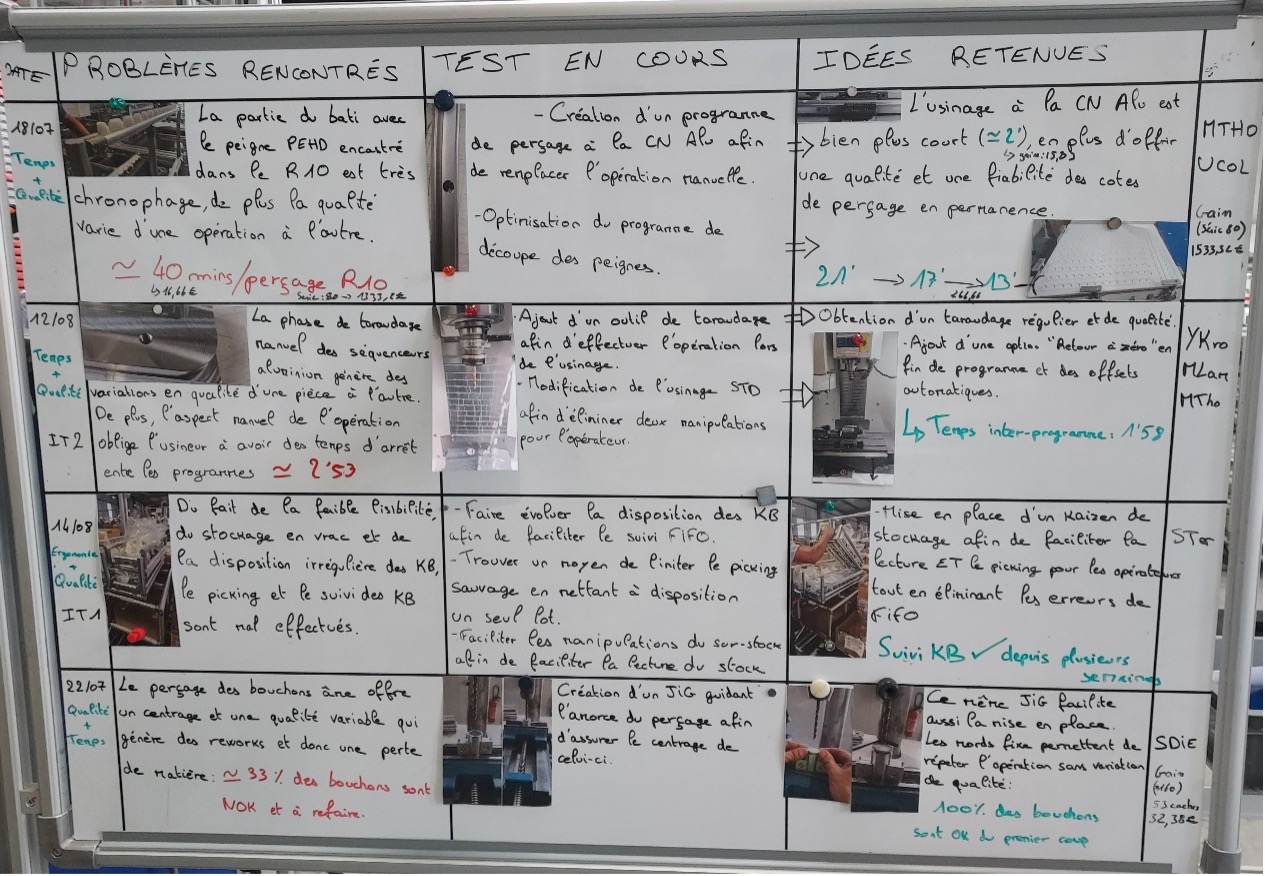 DATE
PROBLÈMES RENCONTRÉS
TEST EN COURS
IDÉES RETENUES
18/07
Temps
+
Qualité
La partie du bati avec
le peigne PEHD encastré
dans le R10 est très
chronophage, de plus la qualité
varie d'une opération à l'autre.
≃ 40 mins/perçage R10
↳ 16,66€
Série: 80 → 1333,2€
- Création d'un programme
de perçage à la CN Alu afin
de remplacer l'opération manuelle.
- Optimisation du programme de
découpe des peignes.
L'usinage à la CN Alu est
⇒ bien plus court (≃2'), en plus d'offrir
↳ gain: 15,83
une qualité et une fiabilité des cotes
de perçage en permanence.
⇒
21' → 17' → 13'
266,66
MTHO
UCOL
Gain
(Série 80)
1533,36€
12/08
Temps
+
Qualité
IT2
La phase de taraudage
manuel des séquenceurs
aluminium génère des
variations en qualité d'une pièce à l'autre.
De plus, l'aspect manuel de l'opération
oblige l'usineur à avoir des temps d'arrêt
entre les programmes ≃ 2'53
- Ajout d'un outil de taraudage
afin d'effectuer l'opération lors
de l'usinage.
- Modification de l'usinage STD
afin d'éliminer deux manipulations
pour l'opérateur.
⇒ Obtention d'un taraudage régulier et de qualité.
- Ajout d'une option "Retour à zéro" en
⇒ fin de programme et des offsets
automatiques.
↳ Temps inter-programme: 1'58
YKro
MLam
MTho
14/08
Ergonomie
+
Qualité
IT1
Du fait de la faible lisibilité,
du stockage en vrac et de
la disposition irrégulière des KB,
le picking et le suivi des KB
sont mal effectués.
- Faire évoluer la disposition des KB
afin de faciliter le suivi FIFO.
- Trouver un moyen de limiter le picking
sauvage en mettant à disposition
un seul lot.
- Faciliter les manipulations du sur-stock
afin de faciliter la lecture du stock.
- Mise en place d'un Kaizen de
stockage afin de faciliter la
lecture ET le picking pour les opérateurs
tout en éliminant les erreurs de
FiFO
Suivi KB ✓ depuis plusieurs
semaines
22/07
Qualité
+
Temps
Le perçage des bouchons âme offre
un centrage et une qualité variable qui
génère des reworks et donc une perte
de matière: ≃ 33% des bouchons sont
NOK et à refaire.
Création d'un JiG guidant
l'amorce du perçage afin
d'assurer le centrage de
celui-ci.
Ce même JiG facilite
aussi la mise en place.
Les mords fixe permettent de
répéter l'opération sans variation
de qualité:
100% des bouchons
sont OK du premier coup
SDiE
Gain
53 caches
32,38€